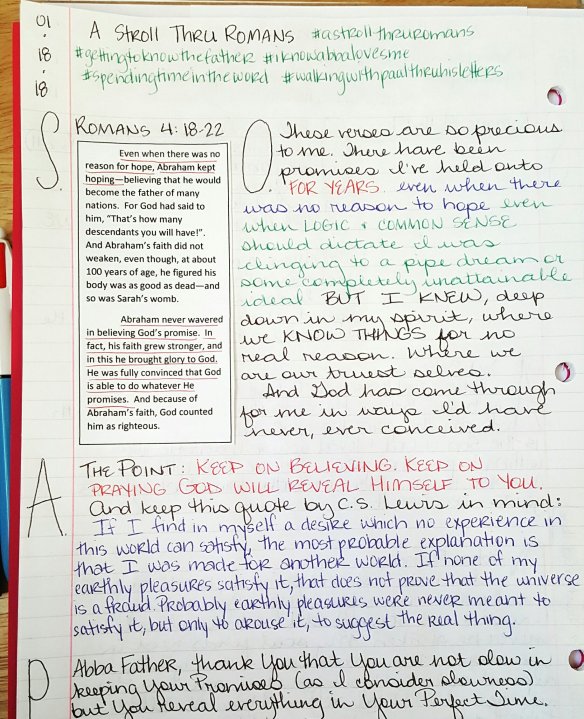 01
·
18
·
18
A Stroll Thru Romans #astrollthruromans
#gettingtoknowthefather #iknowabbalovesme
#spendingtimeintheword #walkingwithpaulthruhisletters
S.
Romans 4:18-22
Even when there was no
reason for hope, Abraham kept
hoping—believing that he would
become the father of many
nations. For God had said to
him, "That's how many
descendants you will have!".
And Abraham's faith did not
weaken, even though, at about
100 years of age, he figured his
body was as good as dead—and
so was Sarah's womb.
Abraham never wavered
in believing God's promise. In
fact, his faith grew stronger, and
in this he brought glory to God.
He was fully convinced that God
is able to do whatever He
promises. And because of
Abraham's faith, God counted
him as righteous.
O.
These verses are so precious
to me. There have been
promises I've held onto
FOR YEARS even when there
was no reason to hope even
when LOGIC & COMMON SENSE
should dictate I was
clinging to a pipe dream or
some completely unattainable
ideal BUT I KNEW, deep
down in my spirit, where
we KNOW THINGS for no
real reason. Where we
are our truest selves.
And God has come through
for me in ways I'd have
never, ever conceived.
A.
The Point: KEEP ON BELIEVING. KEEP ON
PRAYING GOD WILL REVEAL HIMSELF TO YOU.
And keep this quote by C.S. Lewis in mind:
If I find in myself a desire which no experience in
this world can satisfy, the most probable explanation is
that I was made for another world. If none of my
earthly pleasures satisfy it, that does not prove that the universe
is a fraud. Probably earthly pleasures were never meant to
satisfy it, but only to arouse it, to suggest the real thing.
P
Abba Father, thank You that You are not slow in
keeping Your Promises (as I consider slowness)
but You reveal everything in Your Perfect Time.